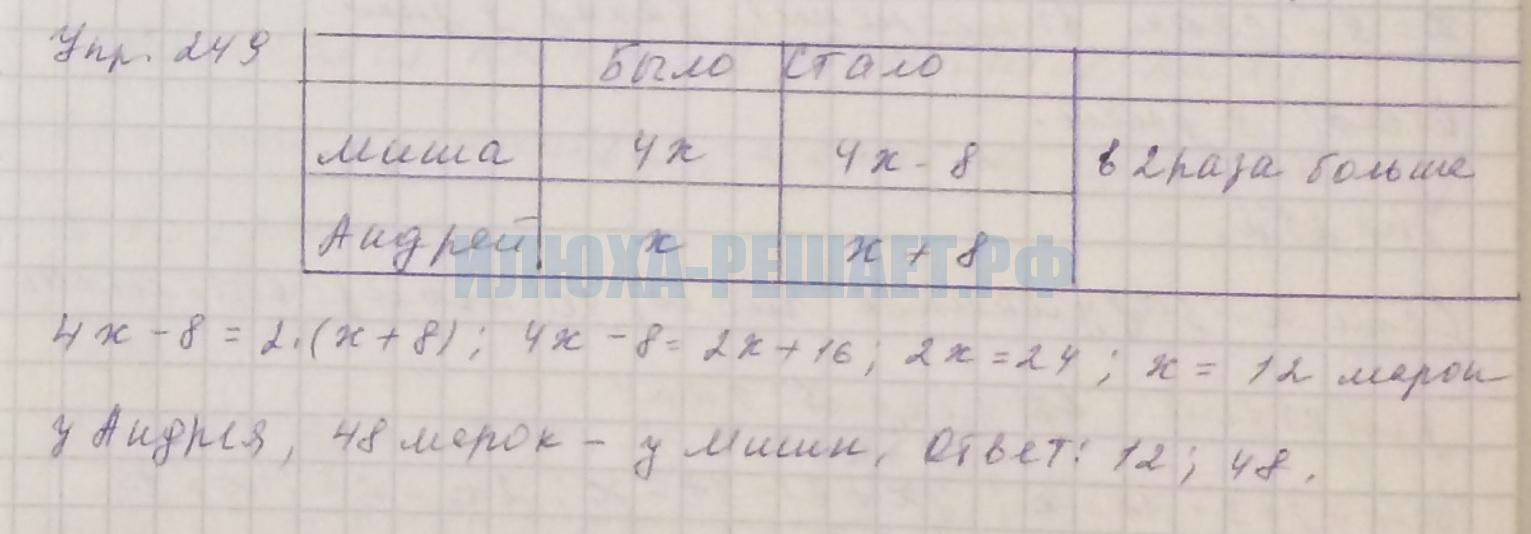 Упр. 249
Было Стало
Миша 4х 4х - 8 в 2 раза больше
Андрей х х + 8
ИЛЮХА-РЕШАЕТ.РФ
4х - 8 = 2·(х + 8); 4х - 8 = 2х + 16; 2х = 24; х = 12 марок
у Андрея, 48 марок - у Миши. Ответ: 12; 48.